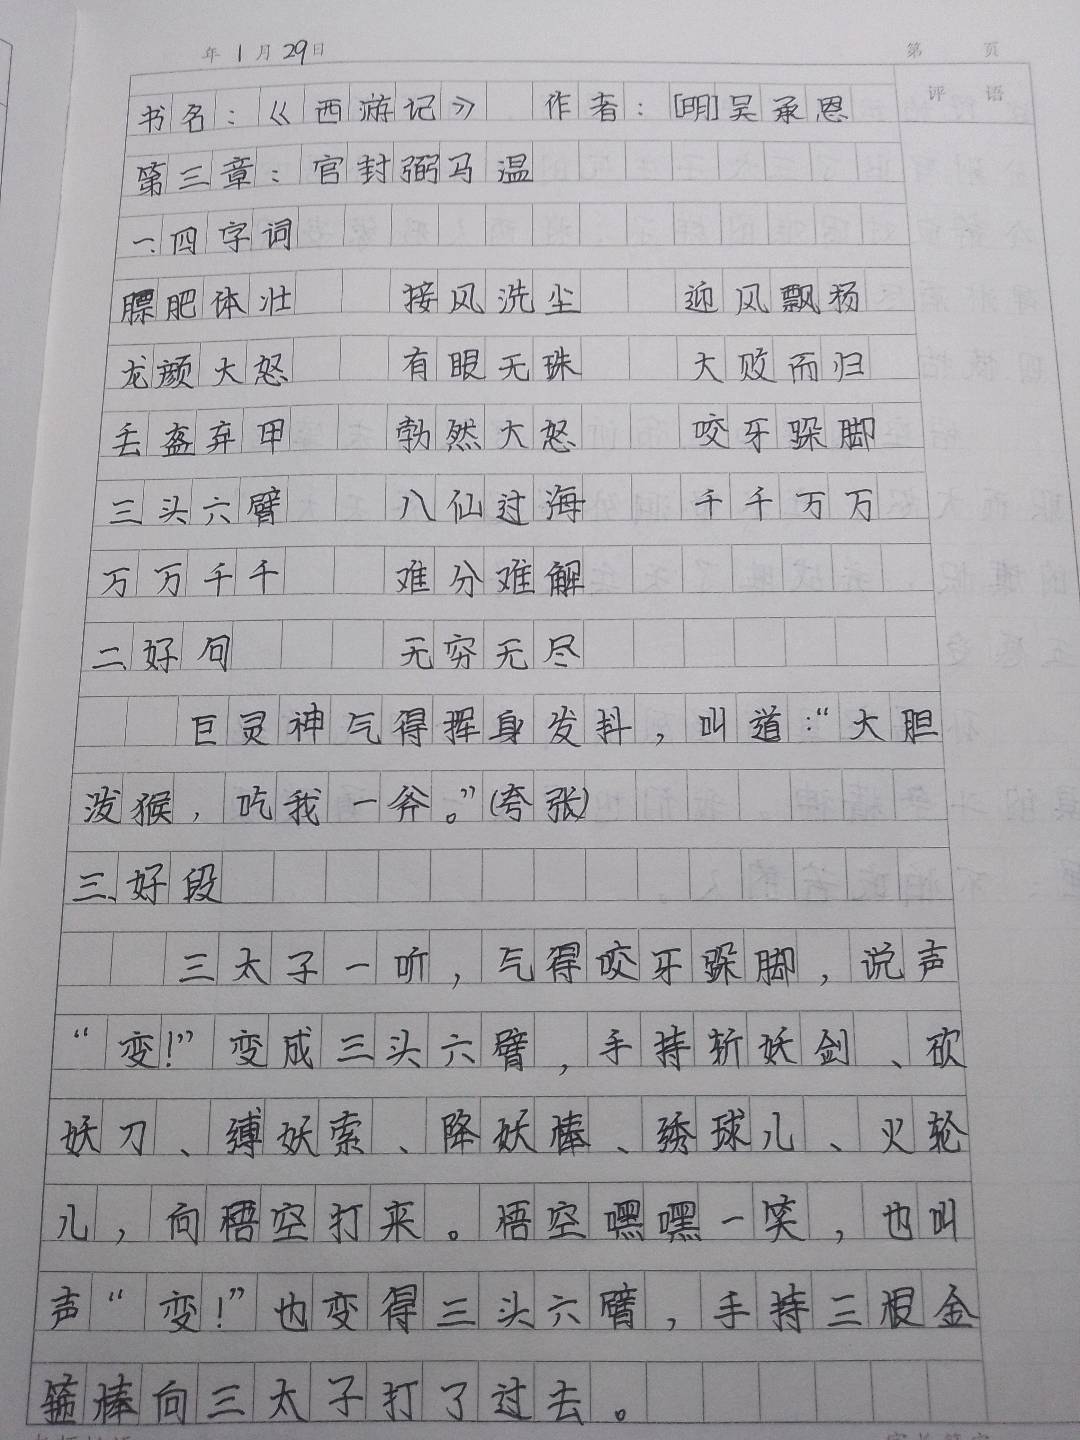 年1月29日
第 页
评 语
书名：《西游记》 作者：[明]吴承恩
第三章：官封弼马温
一、四字词
膘肥体壮 接风洗尘 迎风飘扬
龙颜大怒 有眼无珠 大败而归
丢盔弃甲 勃然大怒 咬牙跺脚
三头六臂 八仙过海 千千万万
万万千千 难分难解
二好句 无穷无尽
巨灵神气得挥身发抖，叫道：“大胆
泼猴，吃我一斧。”(夸张)
三、好段
三太子一听，气得咬牙跺脚，说声
“变！”变成三头六臂，手持斩妖剑、砍
妖刀、缚妖索、降妖棒、绣球儿、火轮
儿，向悟空打来。悟空嘿嘿一笑，也叫
声“变！”也变得三头六臂，手持三根金
箍棒向三太子打了过去。